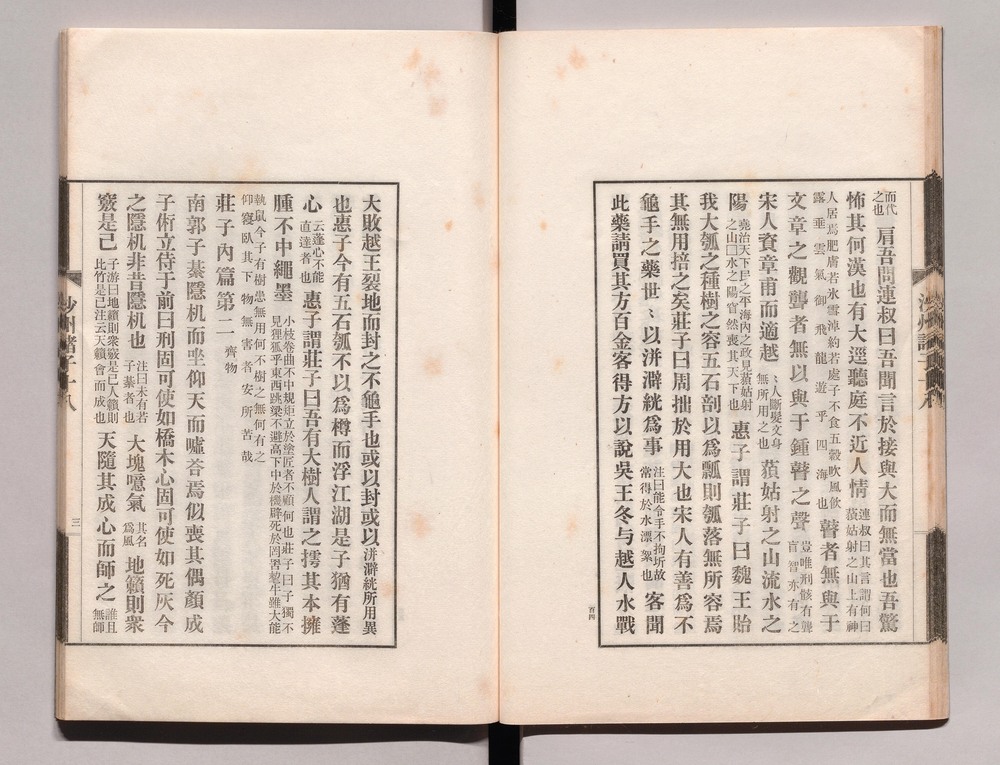 而代之也 肩吾問連叔曰吾聞言於接與大而無當也吾驚
怖其何漢也有大逕聽庭不近人情 連叔曰其言謂何曰藐姑射之山上有神
人居焉肥膚若氷雪淖約若處子不食五穀吹風飲露垂雲氣御飛龍遊乎四海也 瞽者無與于
文章之觀聾者無以與于鍾瞽之聲 豈唯刑骸有聾盲智亦有之
宋人資章甫而適越 〻人斷髮文身無所用之也 藐姑射之山流水之
陽 堯治天下㠯之平海內之政見藐姑射之山□水之陽窅然喪其天下也 惠子謂莊子曰魏王貽
我大瓠之種樹之容五石剖以爲瓢則瓠落無所容焉
其無用掊之矣莊子曰周拙於用大也宋人有善爲不
龜手之藥世〻以洴澼絖爲事 注曰能令手不拘坼故常得於水漂絮也 客聞
此藥請買其方百金客得方以說吳王冬与越人水戰
百四
大敗越王裂地而封之不龜手也或以封或以洴澼絖所用異
也惠子今有五石瓠不以爲樽而浮江湖是子猶有蓬
心 云蓬心不能直達者也 惠子謂莊子曰吾有大樹人謂之樗其本擁
腫不中繩墨 小枝卷曲不中規矩立於塗匠者不顧何也莊子曰子獨不見狸狐乎東西跳梁不避高下中於機辟死於罔罟斄牛雖大能
執鼠今子有樹患無用何不樹之無何有之仰寢臥其下物無害者安所苦哉
莊子內篇第二 齊物
南郭子綦隱机而坐仰天而噓荅焉似喪其偶顏成
子術立侍于前曰刑固可使如槗木心固可使如死灰今
之隱机非昔隱机也 注曰未有若子綦者也 大塊噫氣 其名爲風 地籟則衆
竅是己 子游曰地籟則衆竅是已人籟則此竹是已注云天籟會而成也 天隨其成心而師之 誰且無師
沙州諸子十八
三